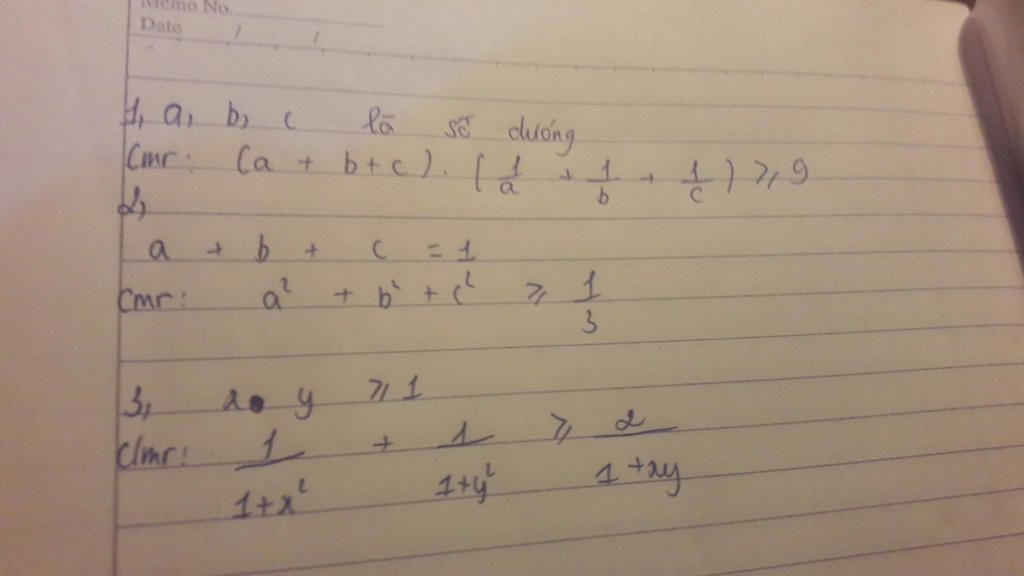 Memo No.
Date / /
1, a, b, c là số dướng
Cmr: (a + b + c) . (1/a + 1/b + 1/c) ⩾ 9
2,
a + b + c = 1
Cmr: a² + b² + c² ⩾ 1/3
3, x . y ⩾ 1
Clmr: 1/(1+x²) + 1/(1+y²) ⩾ 2/(1+xy)